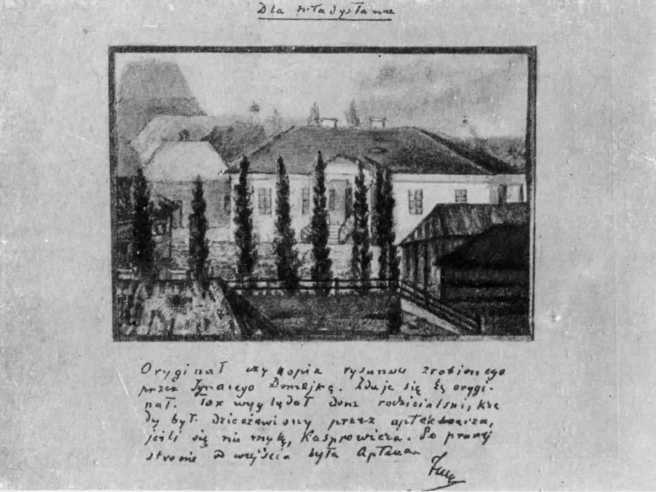 Dla Władysława
Oryginał czy kopia rysunku zrobionego
przez Ignacego Domejkę. Zdaje się że orygi-
nał. Tak wyglądał dom rodzicielski, kie
dy był dzierżawiony przez aptekarza,
jeśli się nie mylę, Kasprowicza. Po prawej
stronie od wejścia była Apteka